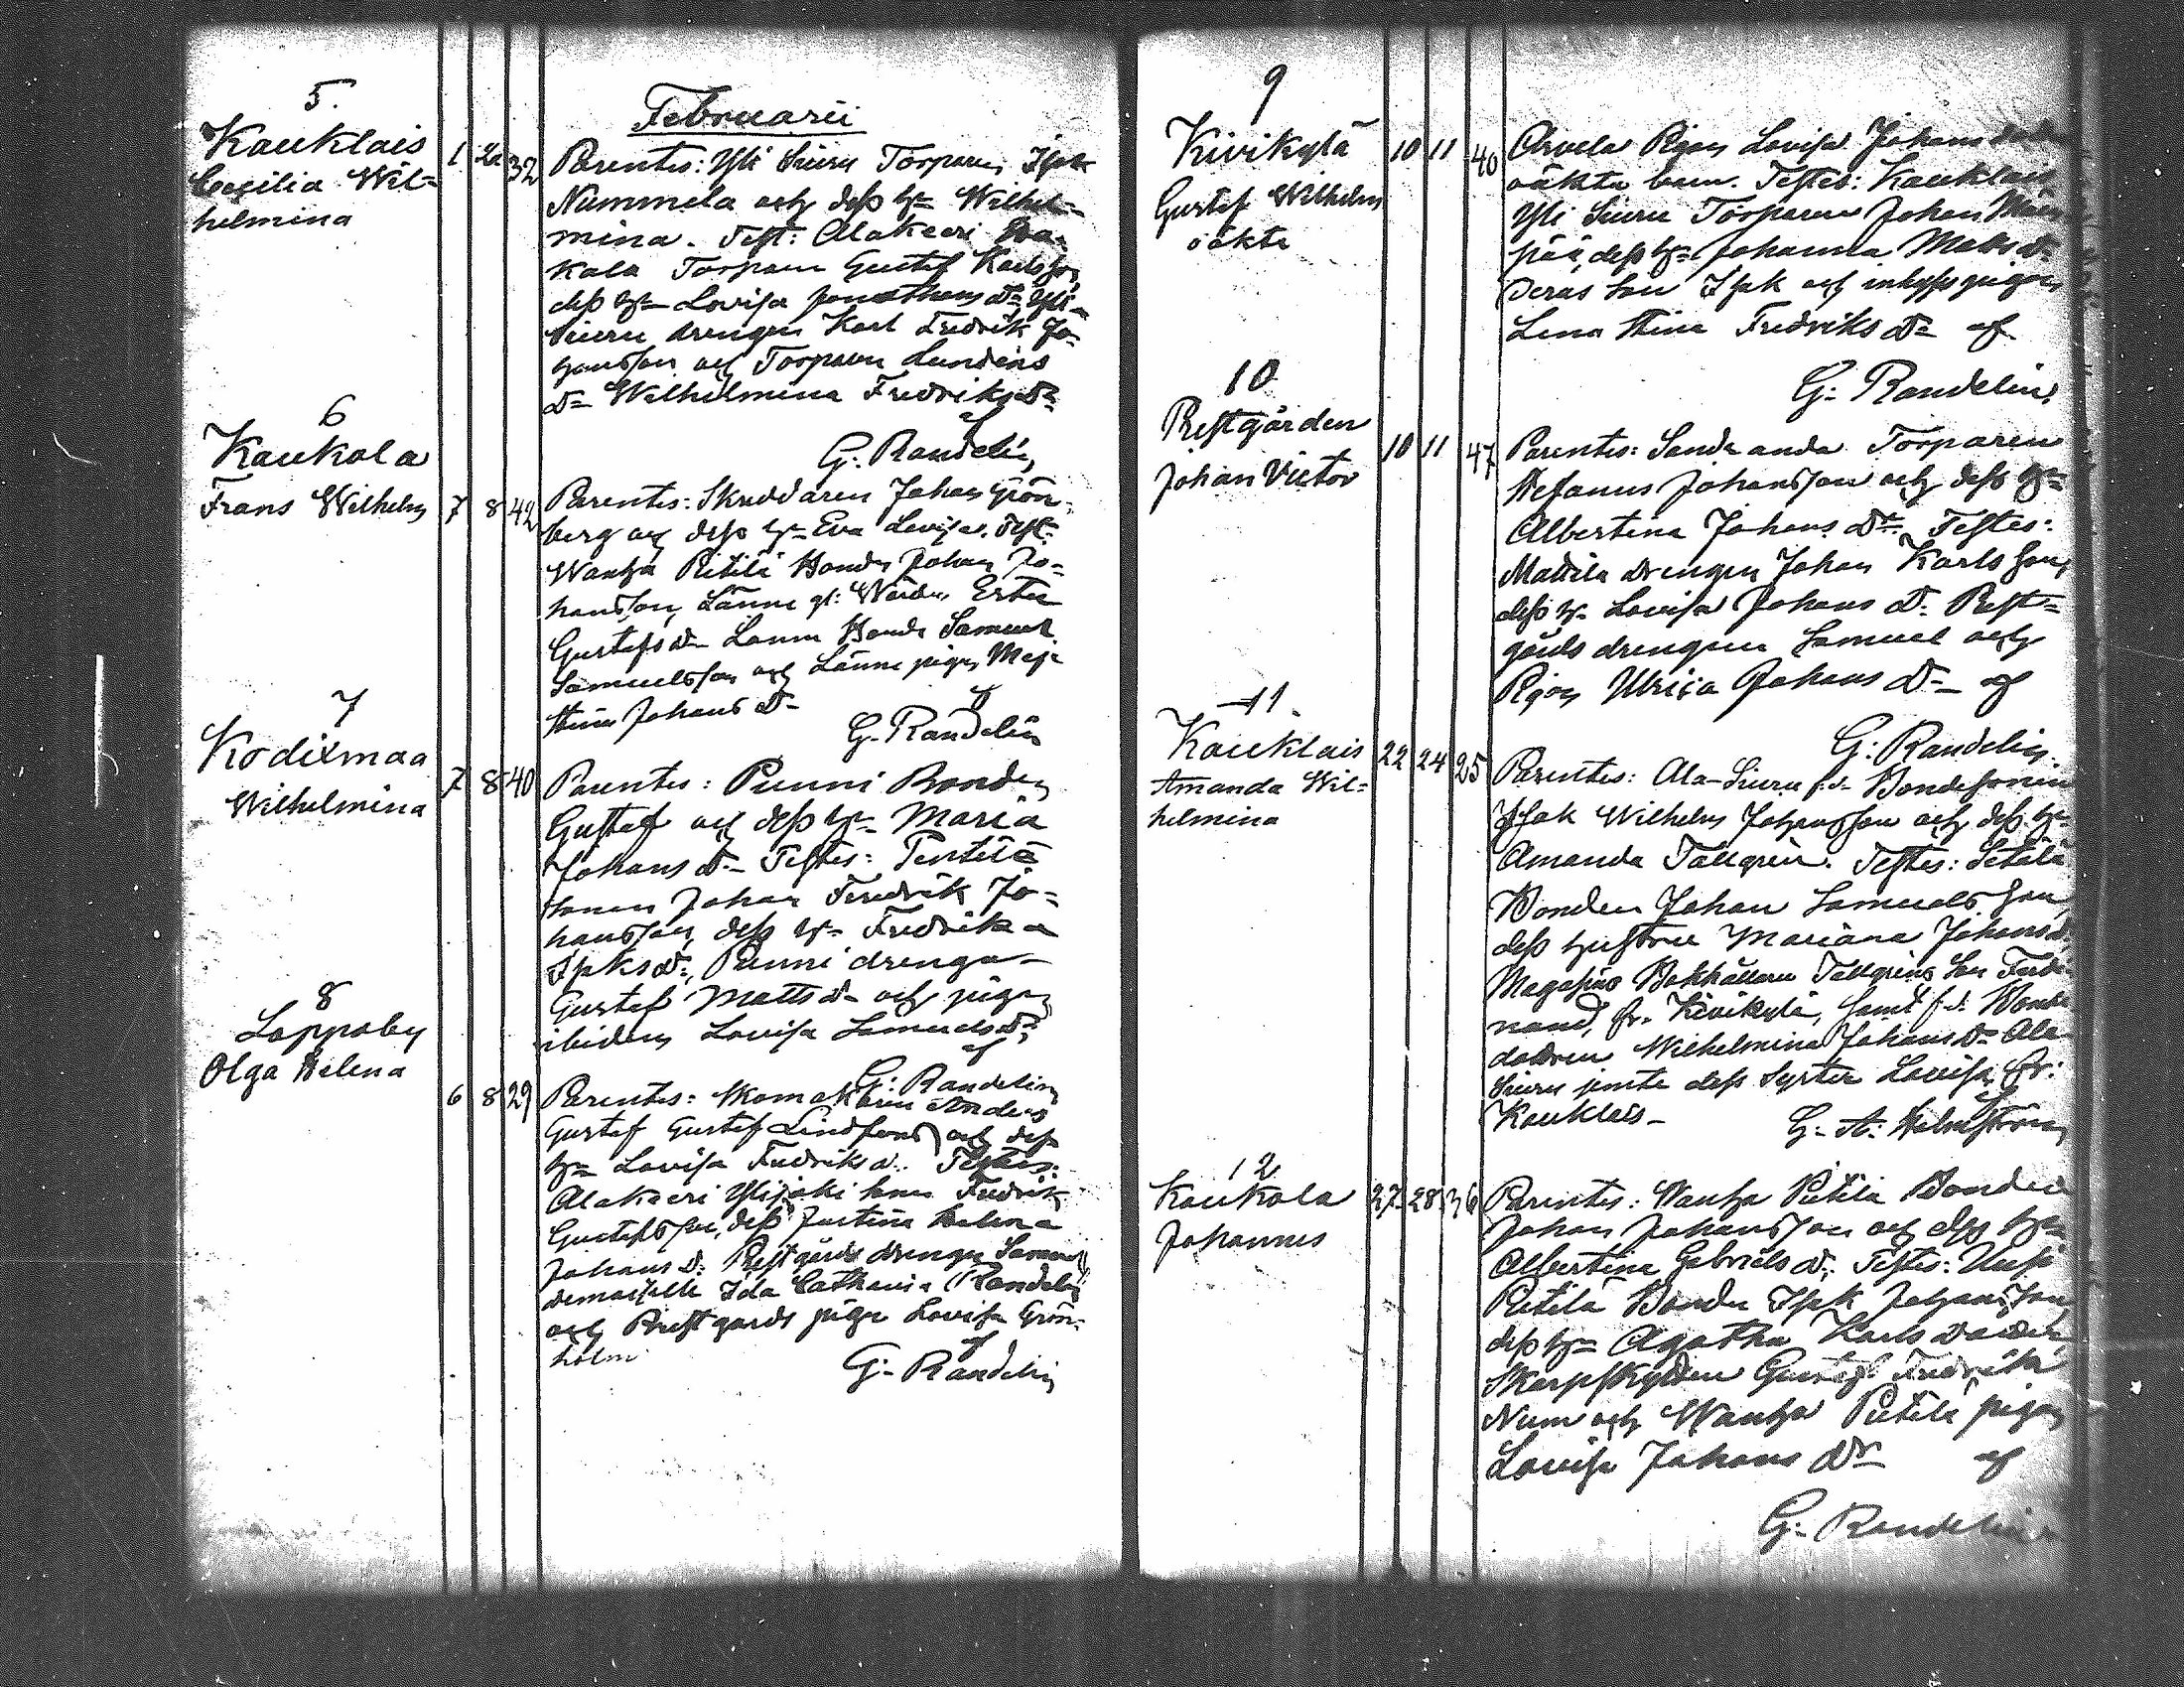 5.
Kauklais
Cecilia Wil=
helmina
1 2 32
Februarii
Parentes: Yli Sieru Torparen Isak
Nummela och dess h:u Wilhel=
mina. Test: Alakeeri
kola Torparen Gustaf Karlsson,
dess h:u Lovisa Jonathans dr Yli=
Sieru drengen Karl Fredrik Jo=
hansson och Torparen Lundens
dr Wilhelmina Fredriks dr
af
G. Randelin
6
Kaukola
Frans Wilhelm
7 8 42
Parentes: Skreddaren Johan Grön=
berg och dess h:u Eva Lovisa. Test:
Wanha Pitilä Bonden Johan Jo=
hansson, Länne gl: Wärden
Gustafs dr Länne Bonde Samuel
Samuelsson och Länne pigan Maja
Stina Johans dr af
G. Randelin
7
Kodixmaa
Wilhelmina
7 8 40
Parentes: Punni Bonden
Gustaf och dess h:u Maria
Johans dr. Testes: Tentilä
sonen Johan Fredrik Jo=
hansson, dess h:u Fredrika
Isaks dr, Punni drengen
Gustaf Matts och pigan
ibidem Lovisa Samuels dr
af
G: Randelin
8
Lappoby
Olga Helena
6 8 29
Parentes: Skomakaren Anders
Gustaf Gustaf Lindfors och dess
h:u Lovisa Fredriks d.. Testes:
Alakeeri Ylijaki sonen Fredrik
Gustafsson, dess Justina Helena
Johans d: Prestgårds drengen Samuel
demoiselle Ida Catharina Randelin
och Prestgårds pigan Lovisa Grön=
holm af
G: Randelin
9
Kivikylä
Gustaf Wilhelm
oäkta
10 11 40
Arvela Pigan Lovisa Johans
oäkta barn. Testes: Kauklais
Yli Sieru Torparen Johan
pää, dess h:u Johanna Matts dr
deras son Isak och inhyses pigan
Lena Stina Fredriks dr af
G: Randelin
10
Prestgården
Johan Victor
10 11 47
Parentes: Sandsanda Torparen
Stefanus Johansson och dess h:u
Albertina Johans dr. Testes:
Mattila drengen Johan Karlsson,
dess h. Lovisa Johans dr. Prest=
gårds drengen Samuel och
Pigan Ulrica Johans dr af
G: Randelin.
11.
Kauklais
Amanda Wil=
helmina
22 24 25
Parentes: Ala-Sieru f.d. Bondesonen
Isak Wilhelm Johansson och dess h:u
Amanda Tallgren. Testes: Setälä
Bonden Johan Samuels son,
dess hustru Mariana Johans d.
Magasins Bokhållaren Tallgrens son Ferdi=
nand, fr. Kivikylä, samt f.d. Bonde
dottren Wilhelmina Johans dr Ala
Sieru jemte dess Syster Lovisa, fr:
Kauklais -
af
G. A. Helmström
12
Kaukola
Johannes
27 28 36
Parentes: Wanha Pitilä Bonden
Johan Johansson och dess h:u
Albertina Gabriels d:. Testes: Uusi
Pitilä Bonden Isak Johansson
dess h:u Agatha Karls dotter,
Skarpskytten Gustaf Fredrik
Num och Wanha Pitilä pigan
Lovisa Johans dr af
G: Randelin